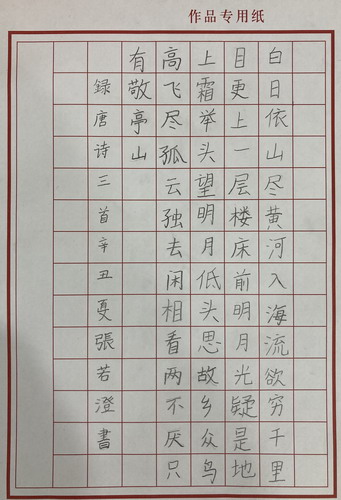 作品专用纸
白日依山尽黄河入海流欲穷千里
目更上一层楼床前明月光疑是地
上霜举头望明月低头思故乡众鸟
高飞尽孤云独去闲相看两不厌只
有敬亭山
録唐诗三首辛丑夏張若澄書